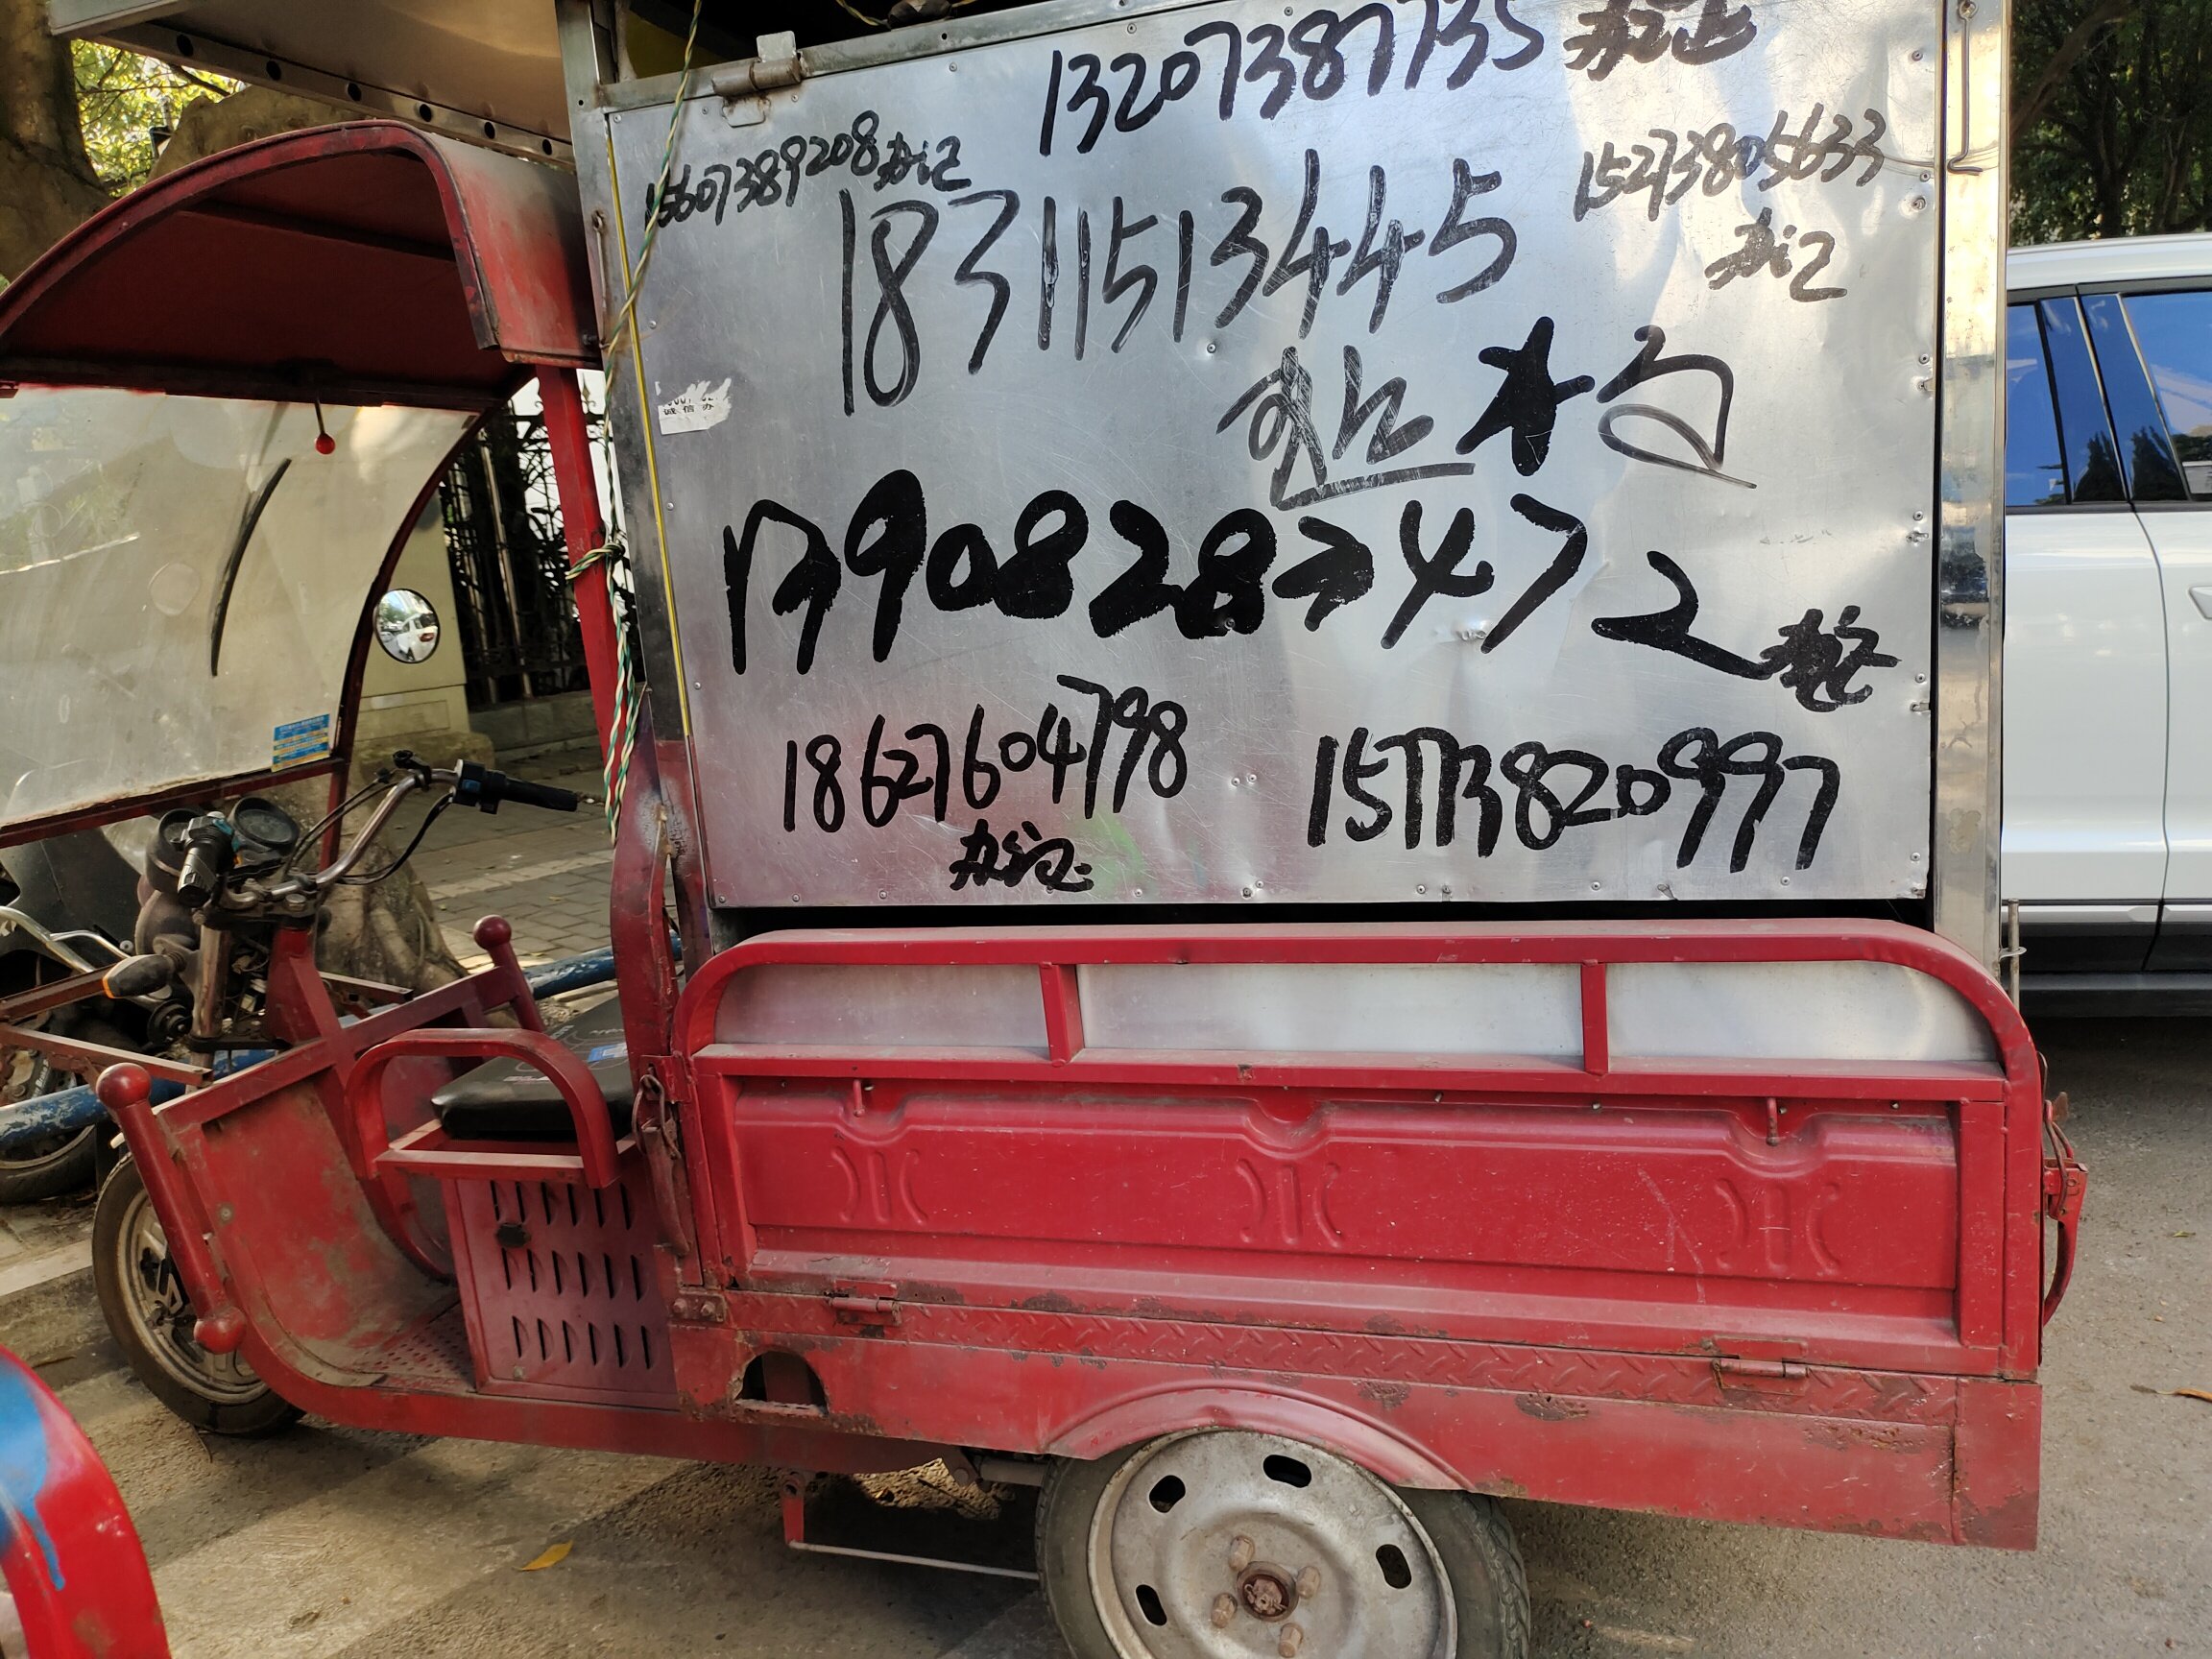 13207387735 办证
15607389208 办证
15273805633
办证
18311513445
诚信办
13908283747
办证
18627604798
办证
15773820997